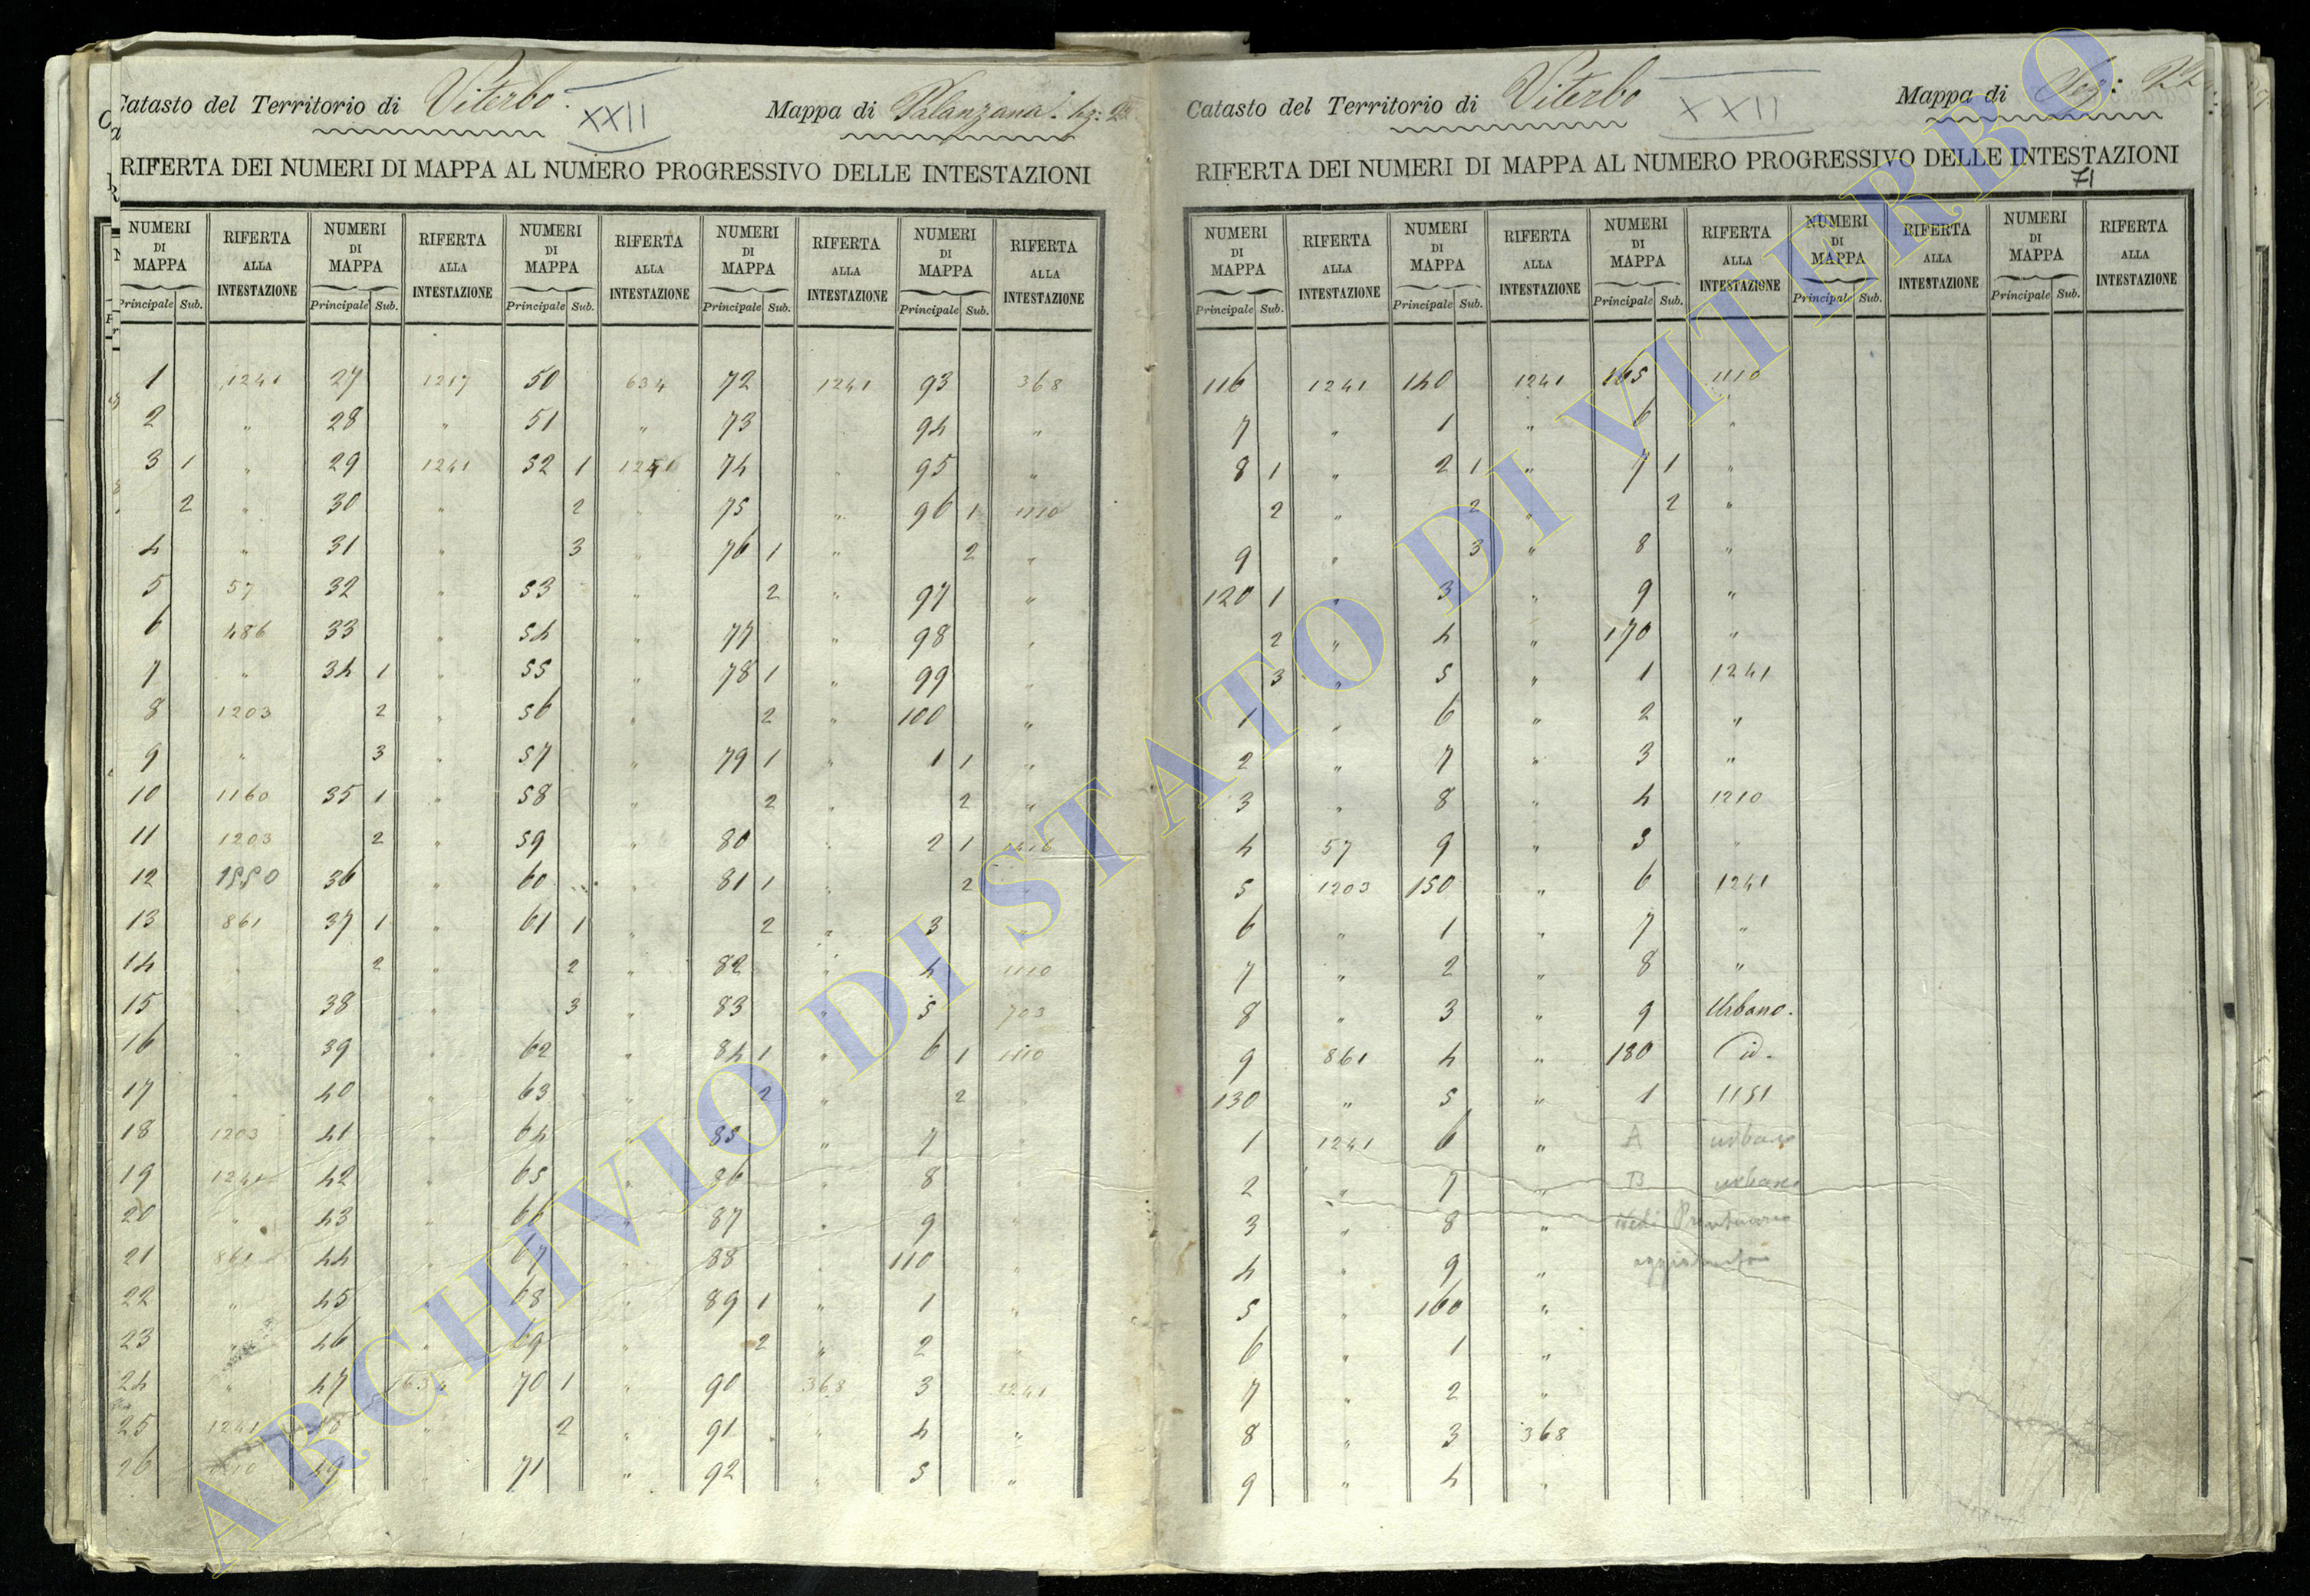 Catasto del Territorio di Viterbo. XXII Mappa di Palanzana.
RIFERTA DEI NUMERI DI MAPPA AL NUMERO PROGRESSIVO DELLE INTESTAZIONI
NUMERI DI MAPPA RIFERTA ALLA INTESTAZIONE NUMERI DI MAPPA RIFERTA ALLA INTESTAZIONE NUMERI DI MAPPA RIFERTA ALLA INTESTAZIONE NUMERI DI MAPPA RIFERTA ALLA INTESTAZIONE NUMERI DI MAPPA RIFERTA ALLA INTESTAZIONE
Principale Sub. Principale Sub. Principale Sub. Principale Sub. Principale Sub.
1 1241 27 1217 50 634 72 1241 93 368
2 " 28 " 51 " 73 94 "
3 1 " 29 1241 52 1 74 95 "
2 " 30 " 2 " 75 " 96 1 1110
4 " 31 " 3 76 1 " 2 "
5 57 32 " 53 " 2 " 97 "
6 486 33 " 54 " 77 " 98 "
7 " 34 1 " 55 " 78 1 " 99 "
8 1203 2 " 56 " 2 " 100 "
9 " 3 " 57 79 1 " 1 1 "
10 1160 35 1 " 58 " 2 " 2 "
11 1203 2 " 59 " 80 2 1
12 36 " 60 " 81 1 " 2 "
13 861 37 1 " 61 1 " 2 " 3 "
14 " 2 " 2 " 82 " 4 1110
15 " 38 " 3 " 83 " 5 703
16 " 39 62 " 84 1 " 6 1 1110
17 " 40 " 63 " 2 " 2
18 1203 41 " 64 " 85 " 7 "
19 1241 42 " 65 " 86 " 8 "
20 " 43 " 66 " 87 " 9 "
21 861 44 " 67 " 88 " 110 "
22 " 45 " 68 " 89 1 " 1 "
23 " 46 " 69 2 " 2 "
24 " 47 634 70 1 " 90 368 3 1241
25 1241 48 " 2 " 91 " 4 "
26 49 " 71 " 92 " 5 "
Catasto del Territorio di Viterbo XXII Mappa di Sez: 22
RIFERTA DEI NUMERI DI MAPPA AL NUMERO PROGRESSIVO DELLE INTESTAZIONI
71
NUMERI DI MAPPA RIFERTA ALLA INTESTAZIONE NUMERI DI MAPPA RIFERTA ALLA INTESTAZIONE NUMERI DI MAPPA RIFERTA ALLA INTESTAZIONE NUMERI DI MAPPA RIFERTA ALLA INTESTAZIONE NUMERI DI MAPPA RIFERTA ALLA INTESTAZIONE
Principale Sub. Principale Sub. Principale Sub. Principale Sub. Principale Sub.
116 1241 140 1241 165 1110
7 " 1 " 6 "
8 1 " 2 1 " 7 1 "
2 " 2 " 2 "
9 " 3 " 8 "
120 1 " 3 " 9 "
2 " 4 " 170 "
3 " 5 " 1 1241
1 " 6 " 2 "
2 " 7 " 3 "
3 " 8 " 4 1210
4 57 9 " 5 "
5 1203 150 " 6 1241
6 " 1 " 7 "
7 " 2 " 8 "
8 " 3 " 9 Urbano.
9 861 4 " 180 Id.
130 " 5 " 1 1151
1 1241 6 " A urbano
2 " 7 " B urbano
3 " 8 " Vedi Prontuario
4 " 9 "
5 " 160 "
6 " 1 "
7 " 2 "
8 " 3 368
9 " 4 "
ARCHIVIO DI STATO DI VITERBO